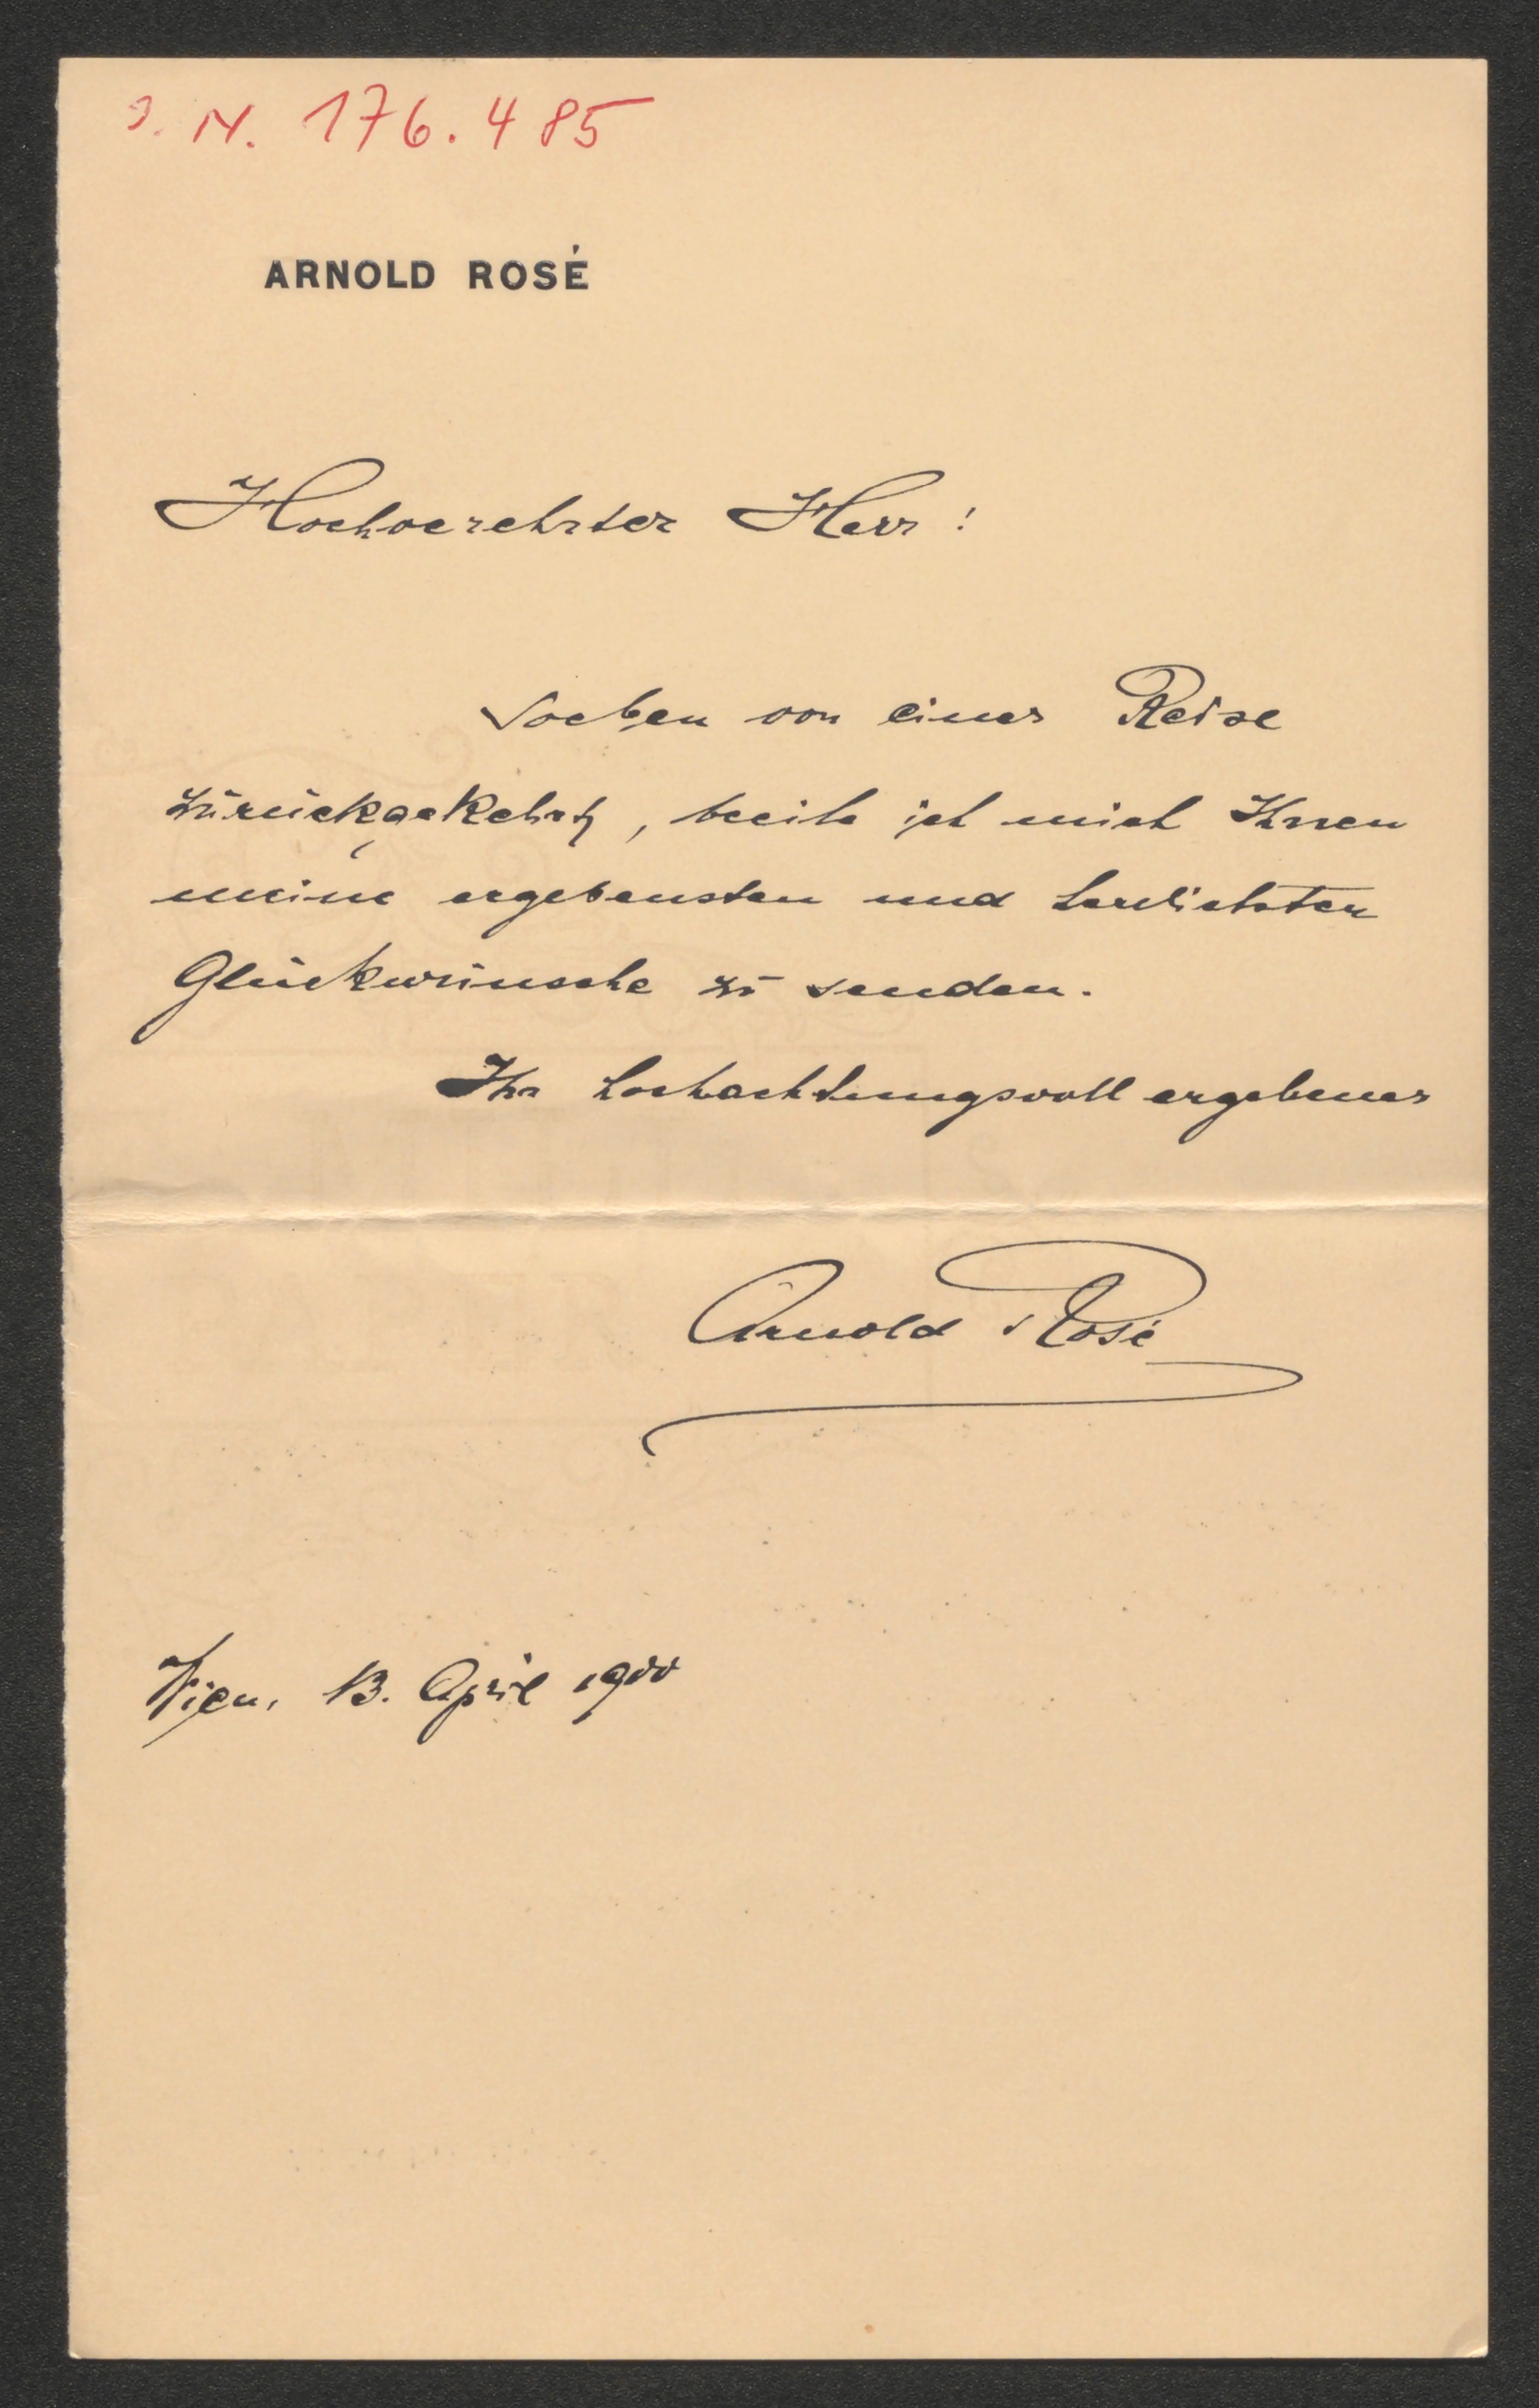 J. N. 176.485
ARNOLD ROSÉ
Hochverehrter Herr!
Soeben von einer Reise
zurückgekehrt, beeile ich mich Ihnen
meine ergebensten und herzlichsten
Glückwünsche zu senden.
Ihr hochachtungsvoll ergebener
Arnold Rosé
Wien, 13. April 1900